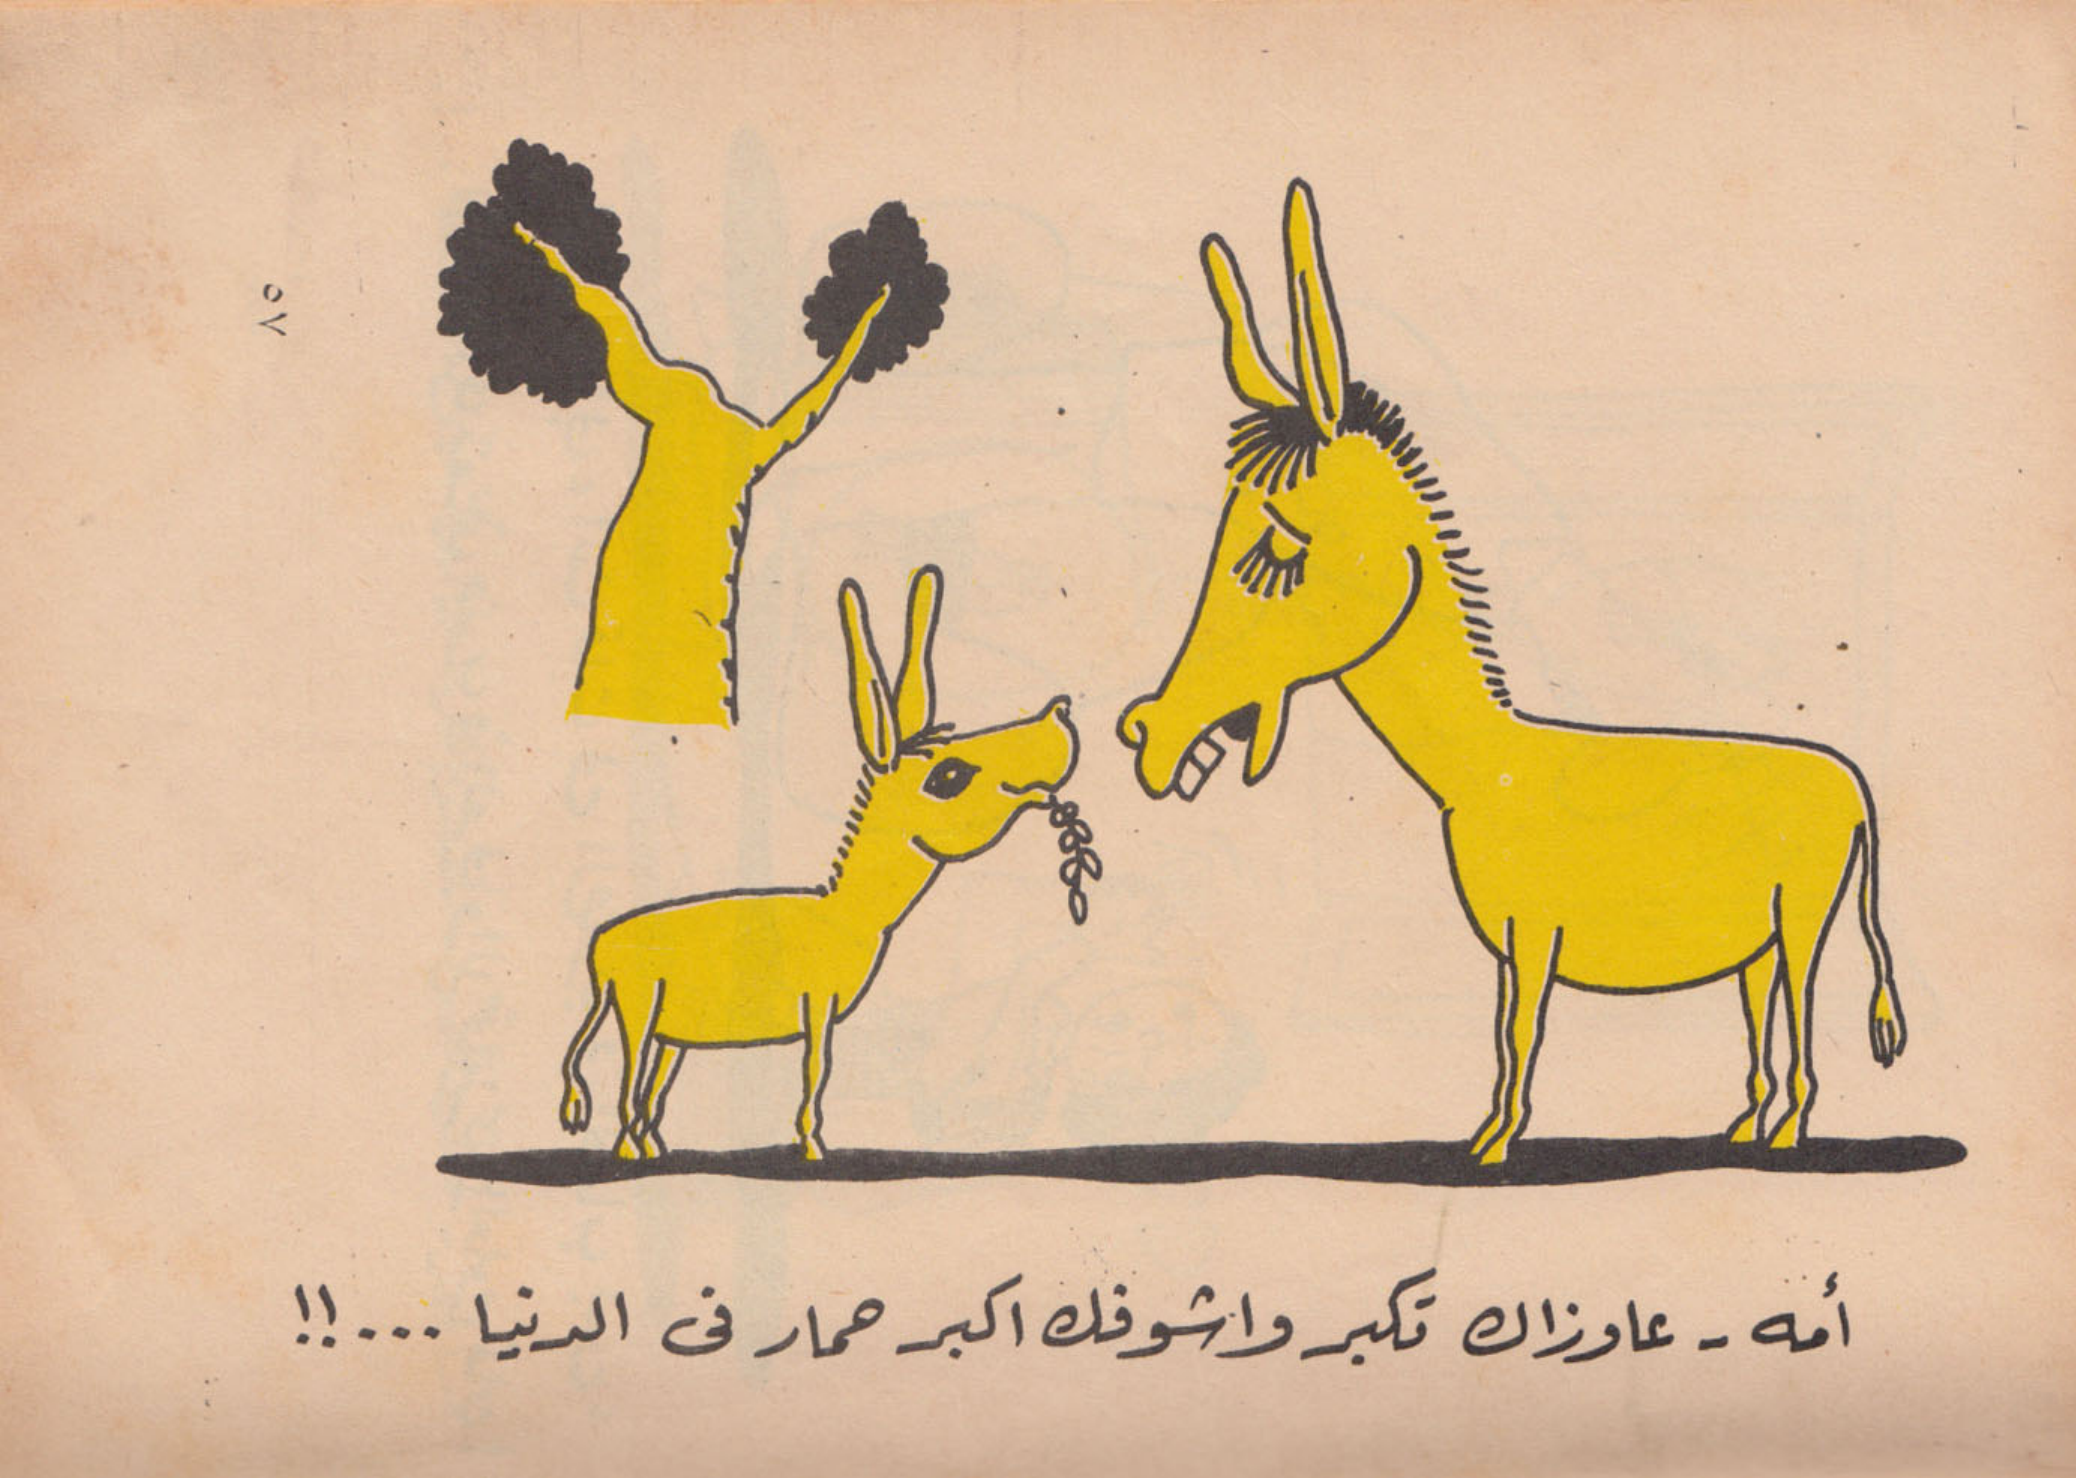 ٥٧
أمه - عاوزاك تكبر واشوفك اكبر حمار فى الدنيا ...!!